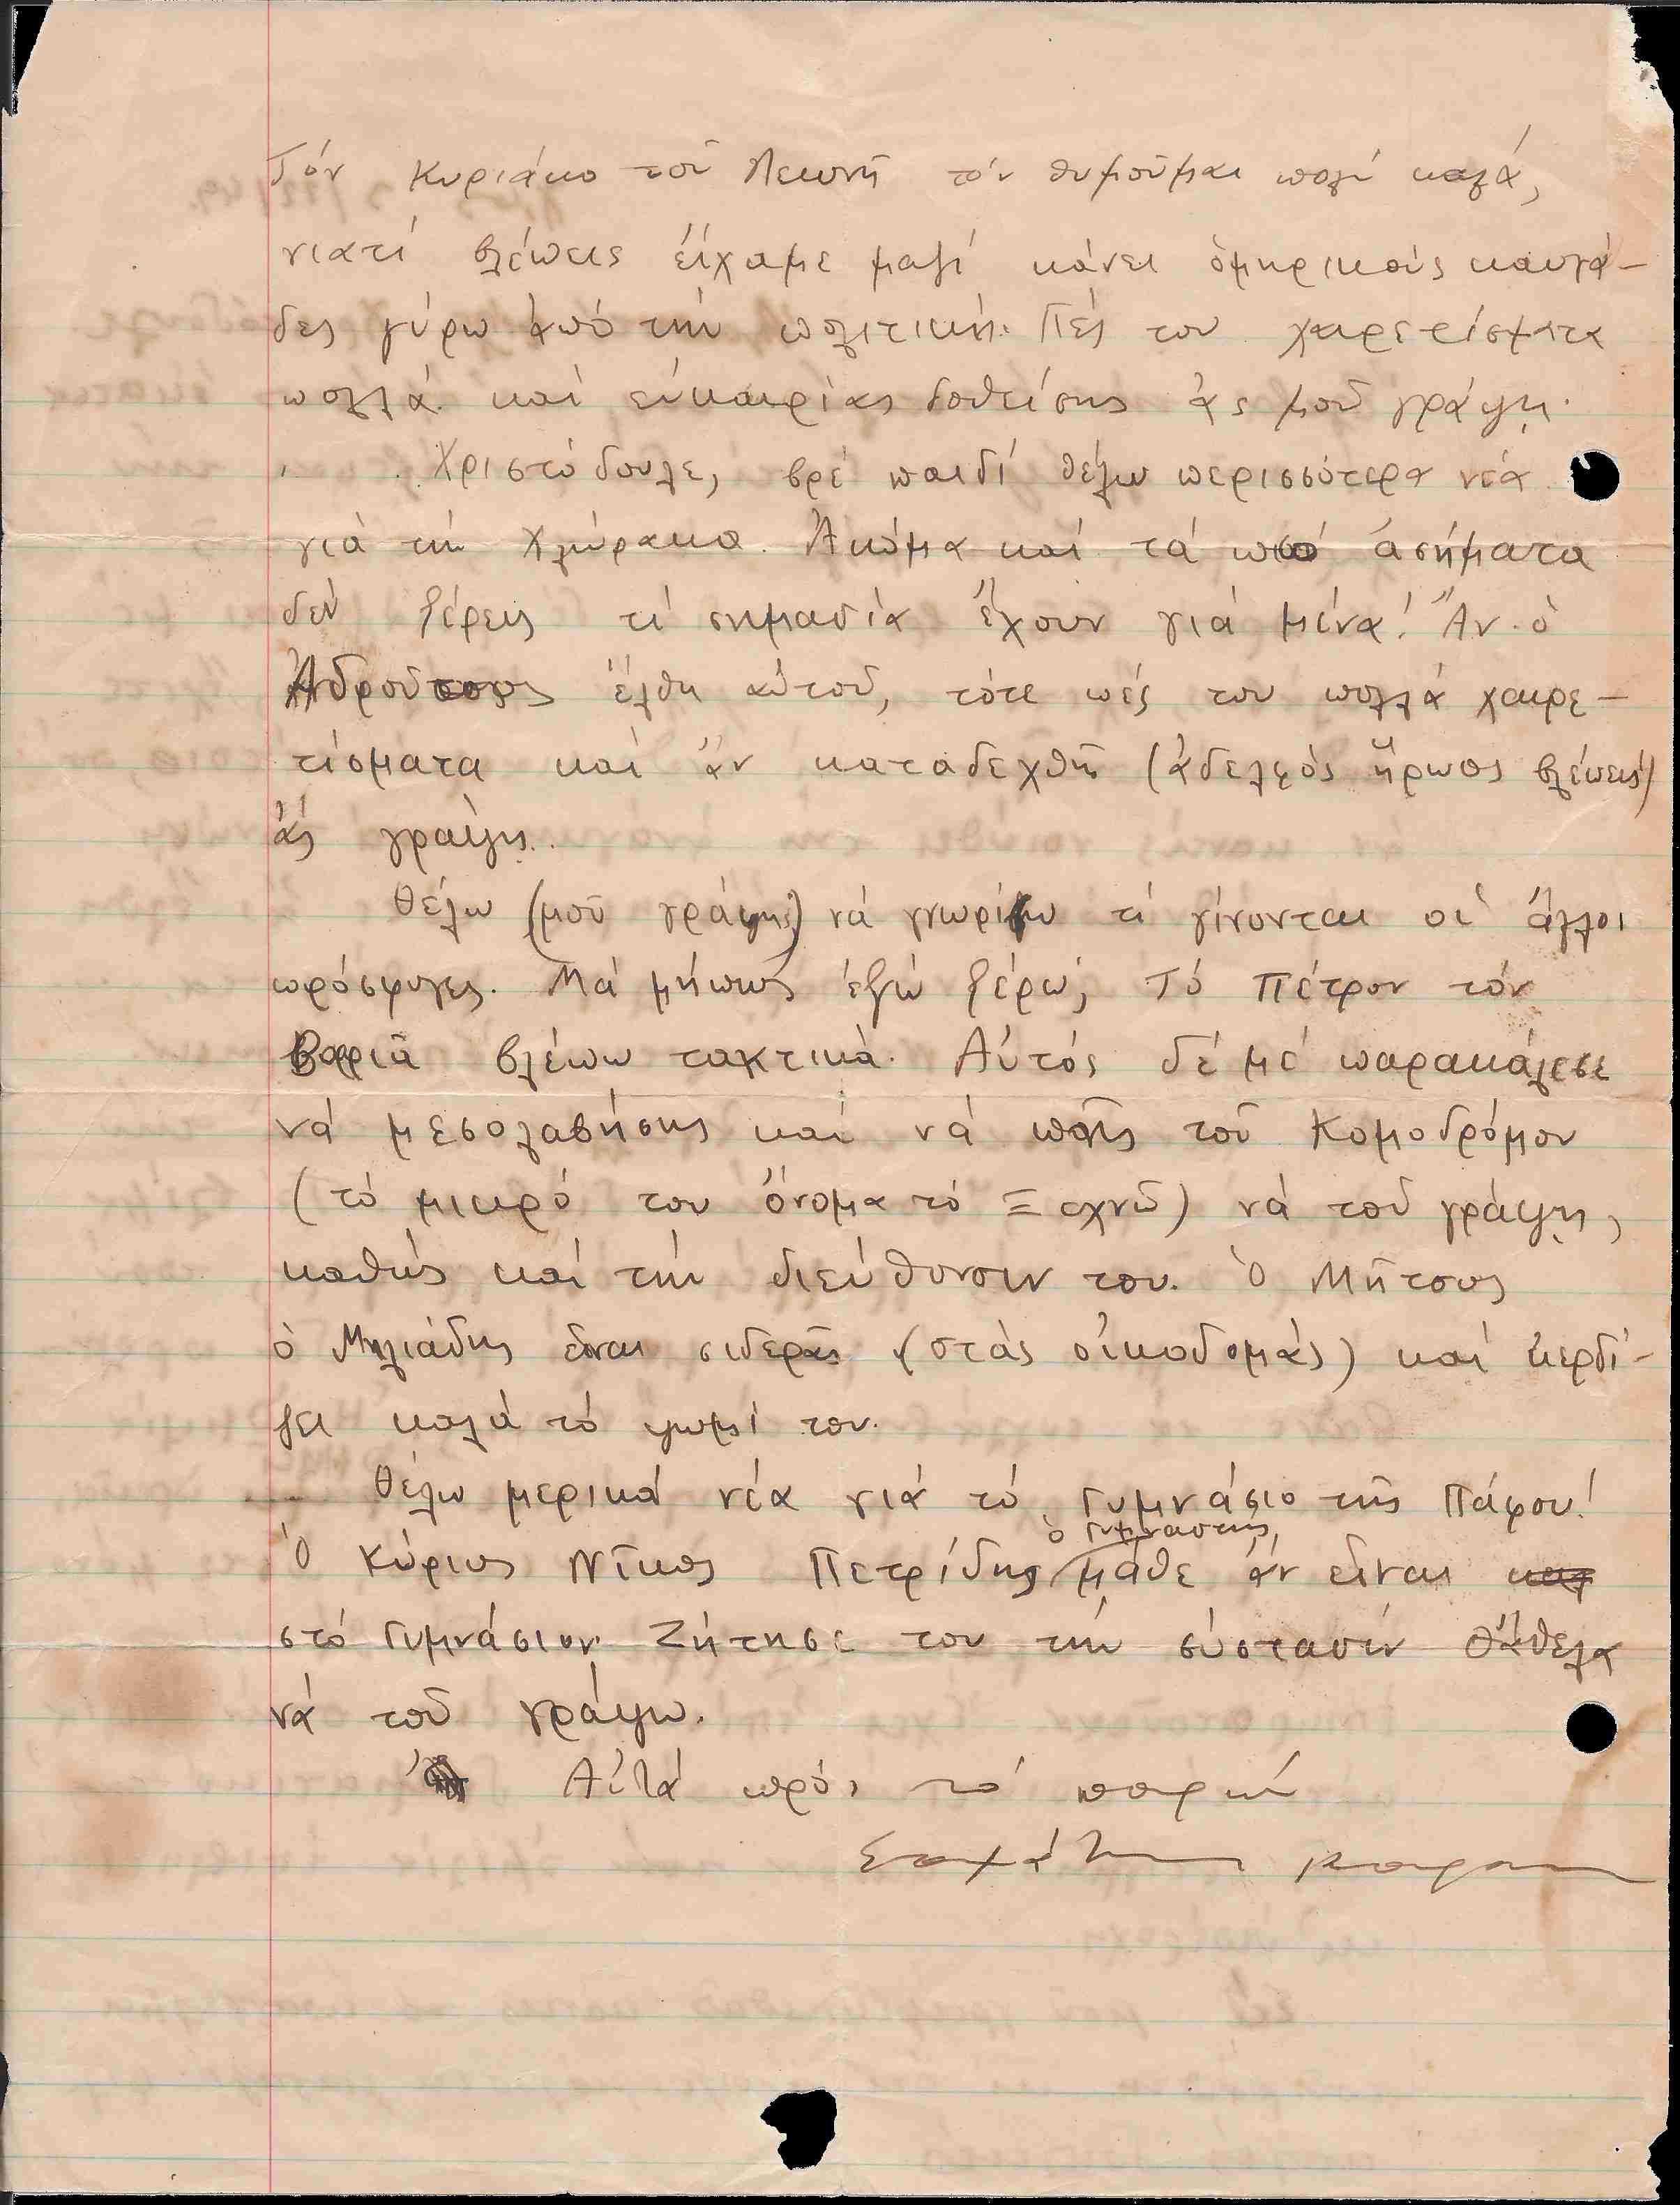 Τόν Κυριάκο τοῦ Λεωνῆ τόν θυμοῦμαι πολύ καλά,
γιατί βλέπεις εἴχαμε μαζί κάνει ὁμηρικούς καυγά-
δες γύρω ἀπό τήν πολιτική. Πές του χαιρετίσματα
πολλά καί εὐκαιρίας δοθείσης ἄς μοῦ γράψῃ.
Χριστόδουλε, βρέ παιδί θέλω περισσότερα νέα
γιά τήν Χλώρακα. Ἀκόμα καί τά πιό ἀσήματα
δέν ξέρεις τί σημασία ἔχουν γιά μένα! Ἄν ὁ
Ἀδροῦτσος ἔλθῃ αὐτοῦ, τότε πές του πολλά χαιρε-
τίσματα καί ἄν καταδεχθῆ (ἀδελφός ἥρωος βλέπεις)
ἄς γράψῃ.
Θέλω (μοῦ γράψῃς) νά γνωρίζω τί γίνονται οἱ ἄλλοι
πρόσφυγες. Μά μήπως ἐγώ ξέρω; Τό Πέτρον τόν
βλέπω τακτικά. Αὐτός δέ μέ παρακάλεσε
νά μεσολαβήσῃς καί νά πῇς τοῦ Κομοδρόμου
(τό μικρό του ὄνομα τό Ξεχνῶ) νά τοῦ γράψῃ,
καθώς καί τήν διεύθυνσιν του. Ὁ Μῆτσος
ὁ Μηλιάδης εἶναι σιδερᾶς (στάς οἰκοδομάς) καί κερδί-
ζει καλά τό ψωμί του.
Θέλω μερικά νέα γιά τό Γυμνάσιο τῆς Πάφου!
ὁ Γυμναστής,
Ὁ Κύριος Νῖκος Πετρίδης μάθε ἄν εἶναι
στό Γυμνάσιον. Ζήτησε του τήν σύστασιν θἄθελα
νά τοῦ γράψω.
Αὐτά πρός τό παρόν